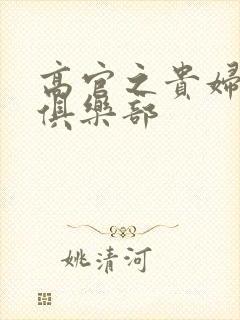 高官之貴婦
俱樂部
姚清河